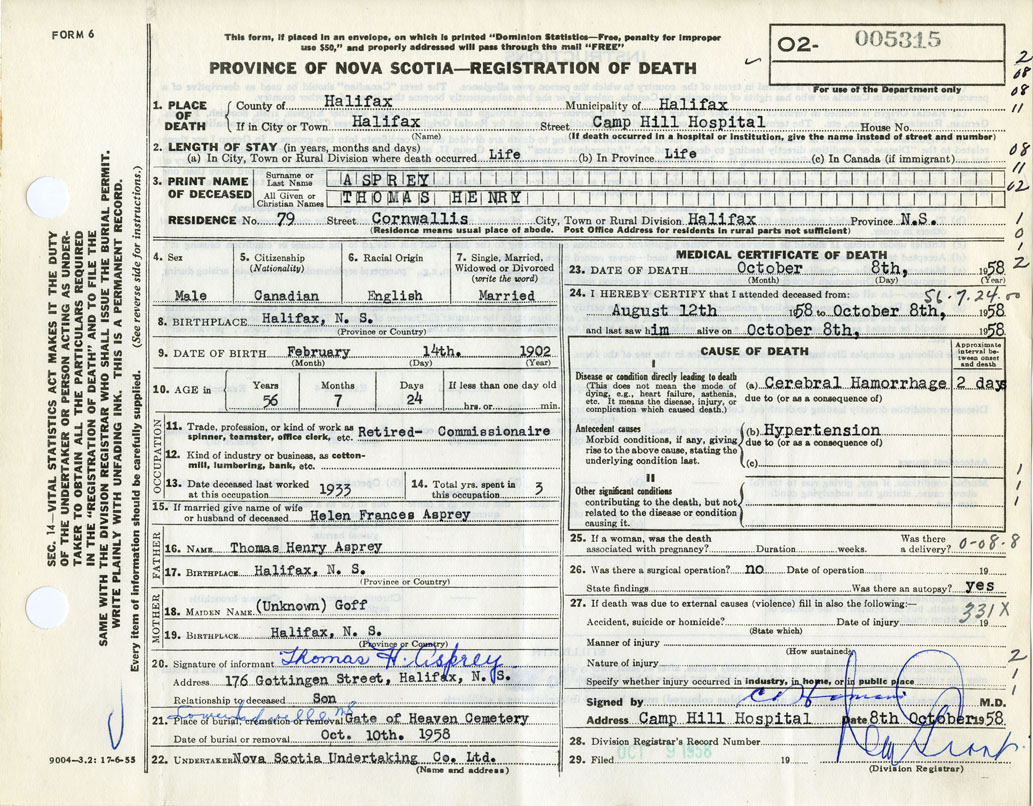 FORM 6
This form, if placed in an envelope, on which is printed "Dominion Statistics—Free, penalty for improper
use $50," and properly addressed will pass through the mail "FREE"
PROVINCE OF NOVA SCOTIA—REGISTRATION OF DEATH
02- 005315
For use of the Department only
1. PLACE OF DEATH
County of Halifax Municipality of Halifax
If in City or Town Halifax Street Camp Hill Hospital House No.
(Name) (If death occurred in a hospital or institution, give the name instead of street and number)
2. LENGTH OF STAY (in years, months and days)
(a) In City, Town or Rural Division where death occurred Life (b) In Province Life (c) In Canada (if immigrant)
3. PRINT NAME OF DECEASED
Surname or Last Name ASPREY
All Given or Christian Names THOMAS HENRY
RESIDENCE No. 79 Street Cornwallis City, Town or Rural Division Halifax Province N.S.
(Residence means usual place of abode. Post Office Address for residents in rural parts not sufficient)
4. Sex
Male
5. Citizenship
(Nationality)
Canadian
6. Racial Origin
English
7. Single, Married,
Widowed or Divorced
(write the word)
Married
8. BIRTHPLACE Halifax, N. S.
(Province or Country)
9. DATE OF BIRTH February 14th. 1902
(Month) (Day) (Year)
10. AGE in Years Months Days If less than one day old
56 7 24 hrs. or min.
OCCUPATION
11. Trade, profession, or kind of work as
spinner, teamster, office clerk, etc. Retired- Commissionaire
12. Kind of industry or business, as cotton-
mill, lumbering, bank, etc.
13. Date deceased last worked
at this occupation 1933
14. Total yrs. spent in
this occupation 3
15. If married give name of wife
or husband of deceased Helen Frances Asprey
FATHER
16. NAME Thomas Henry Asprey
17. BIRTHPLACE Halifax, N. S.
(Province or Country)
MOTHER
18. MAIDEN NAME (Unknown) Goff
19. BIRTHPLACE Halifax, N. S.
(Province or Country)
20. Signature of informant Thomas H. Asprey
Address 176 Gottingen Street, Halifax, N. S.
Relationship to deceased Son
21. Place of burial, cremation or removal Gate of Heaven Cemetery
Date of burial or removal Oct. 10th. 1958
22. UNDERTAKER Nova Scotia Undertaking Co. Ltd.
(Name and address)
MEDICAL CERTIFICATE OF DEATH
23. DATE OF DEATH October 8th, 1958
(Month) (Day) (Year)
24. I HEREBY CERTIFY that I attended deceased from: 56.7.24.00
August 12th 1958 to October 8th, 1958
and last saw him alive on October 8th, 1958
CAUSE OF DEATH
Approximate
interval be-
tween onset
and death
I
Disease or condition directly leading to death
(This does not mean the mode of
dying, e.g., heart failure, asthenia,
etc. It means the disease, injury, or
complication which caused death.)
(a) Cerebral Hamorrhage 2 days
due to (or as a consequence of)
Antecedent causes
Morbid conditions, if any, giving
rise to the above cause, stating the
underlying condition last.
(b) Hypertension
due to (or as a consequence of)
(c)
II
Other significant conditions
contributing to the death, but not
related to the disease or condition
causing it.
25. If a woman, was the death
associated with pregnancy? Duration weeks. Was there
a delivery? 0-08-8
26. Was there a surgical operation? no Date of operation 19
State findings Was there an autopsy? yes
27. If death was due to external causes (violence) fill in also the following:— 331X
Accident, suicide or homicide? Date of injury 19
(State which)
Manner of injury
(How sustained)
Nature of injury
Specify whether injury occurred in industry, in home, or in public place
Signed by M.D.
Address Camp Hill Hospital Date 8th October 1958
28. Division Registrar's Record Number
OCT 9 1958
29. Filed 19
(Division Registrar)
2
08
08
11
08
11
02
1
0
1
2
1
1
1
2
1
1
SEC. 14—VITAL STATISTICS ACT MAKES IT THE DUTY
OF THE UNDERTAKER OR PERSON ACTING AS UNDER-
TAKER TO OBTAIN ALL THE PARTICULARS REQUIRED
IN THE "REGISTRATION OF DEATH" AND TO FILE THE
SAME WITH THE DIVISION REGISTRAR WHO SHALL ISSUE THE BURIAL PERMIT.
WRITE PLAINLY WITH UNFADING INK. THIS IS A PERMANENT RECORD.
Every item of information should be carefully supplied. (See reverse side for instructions.)
9004—3.2: 17-6-55